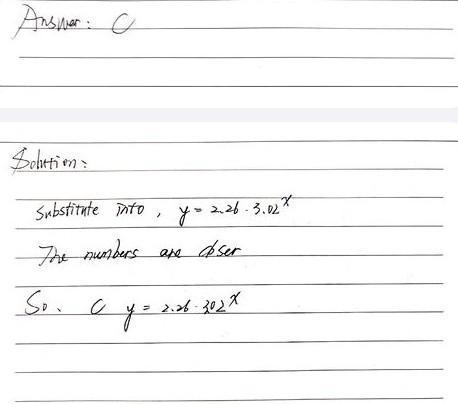 Answer: C
Solution:
Substitute into, y = 2.26 · 3.02^x
The numbers are closer
So. C y = 2.26 · 3.02^x